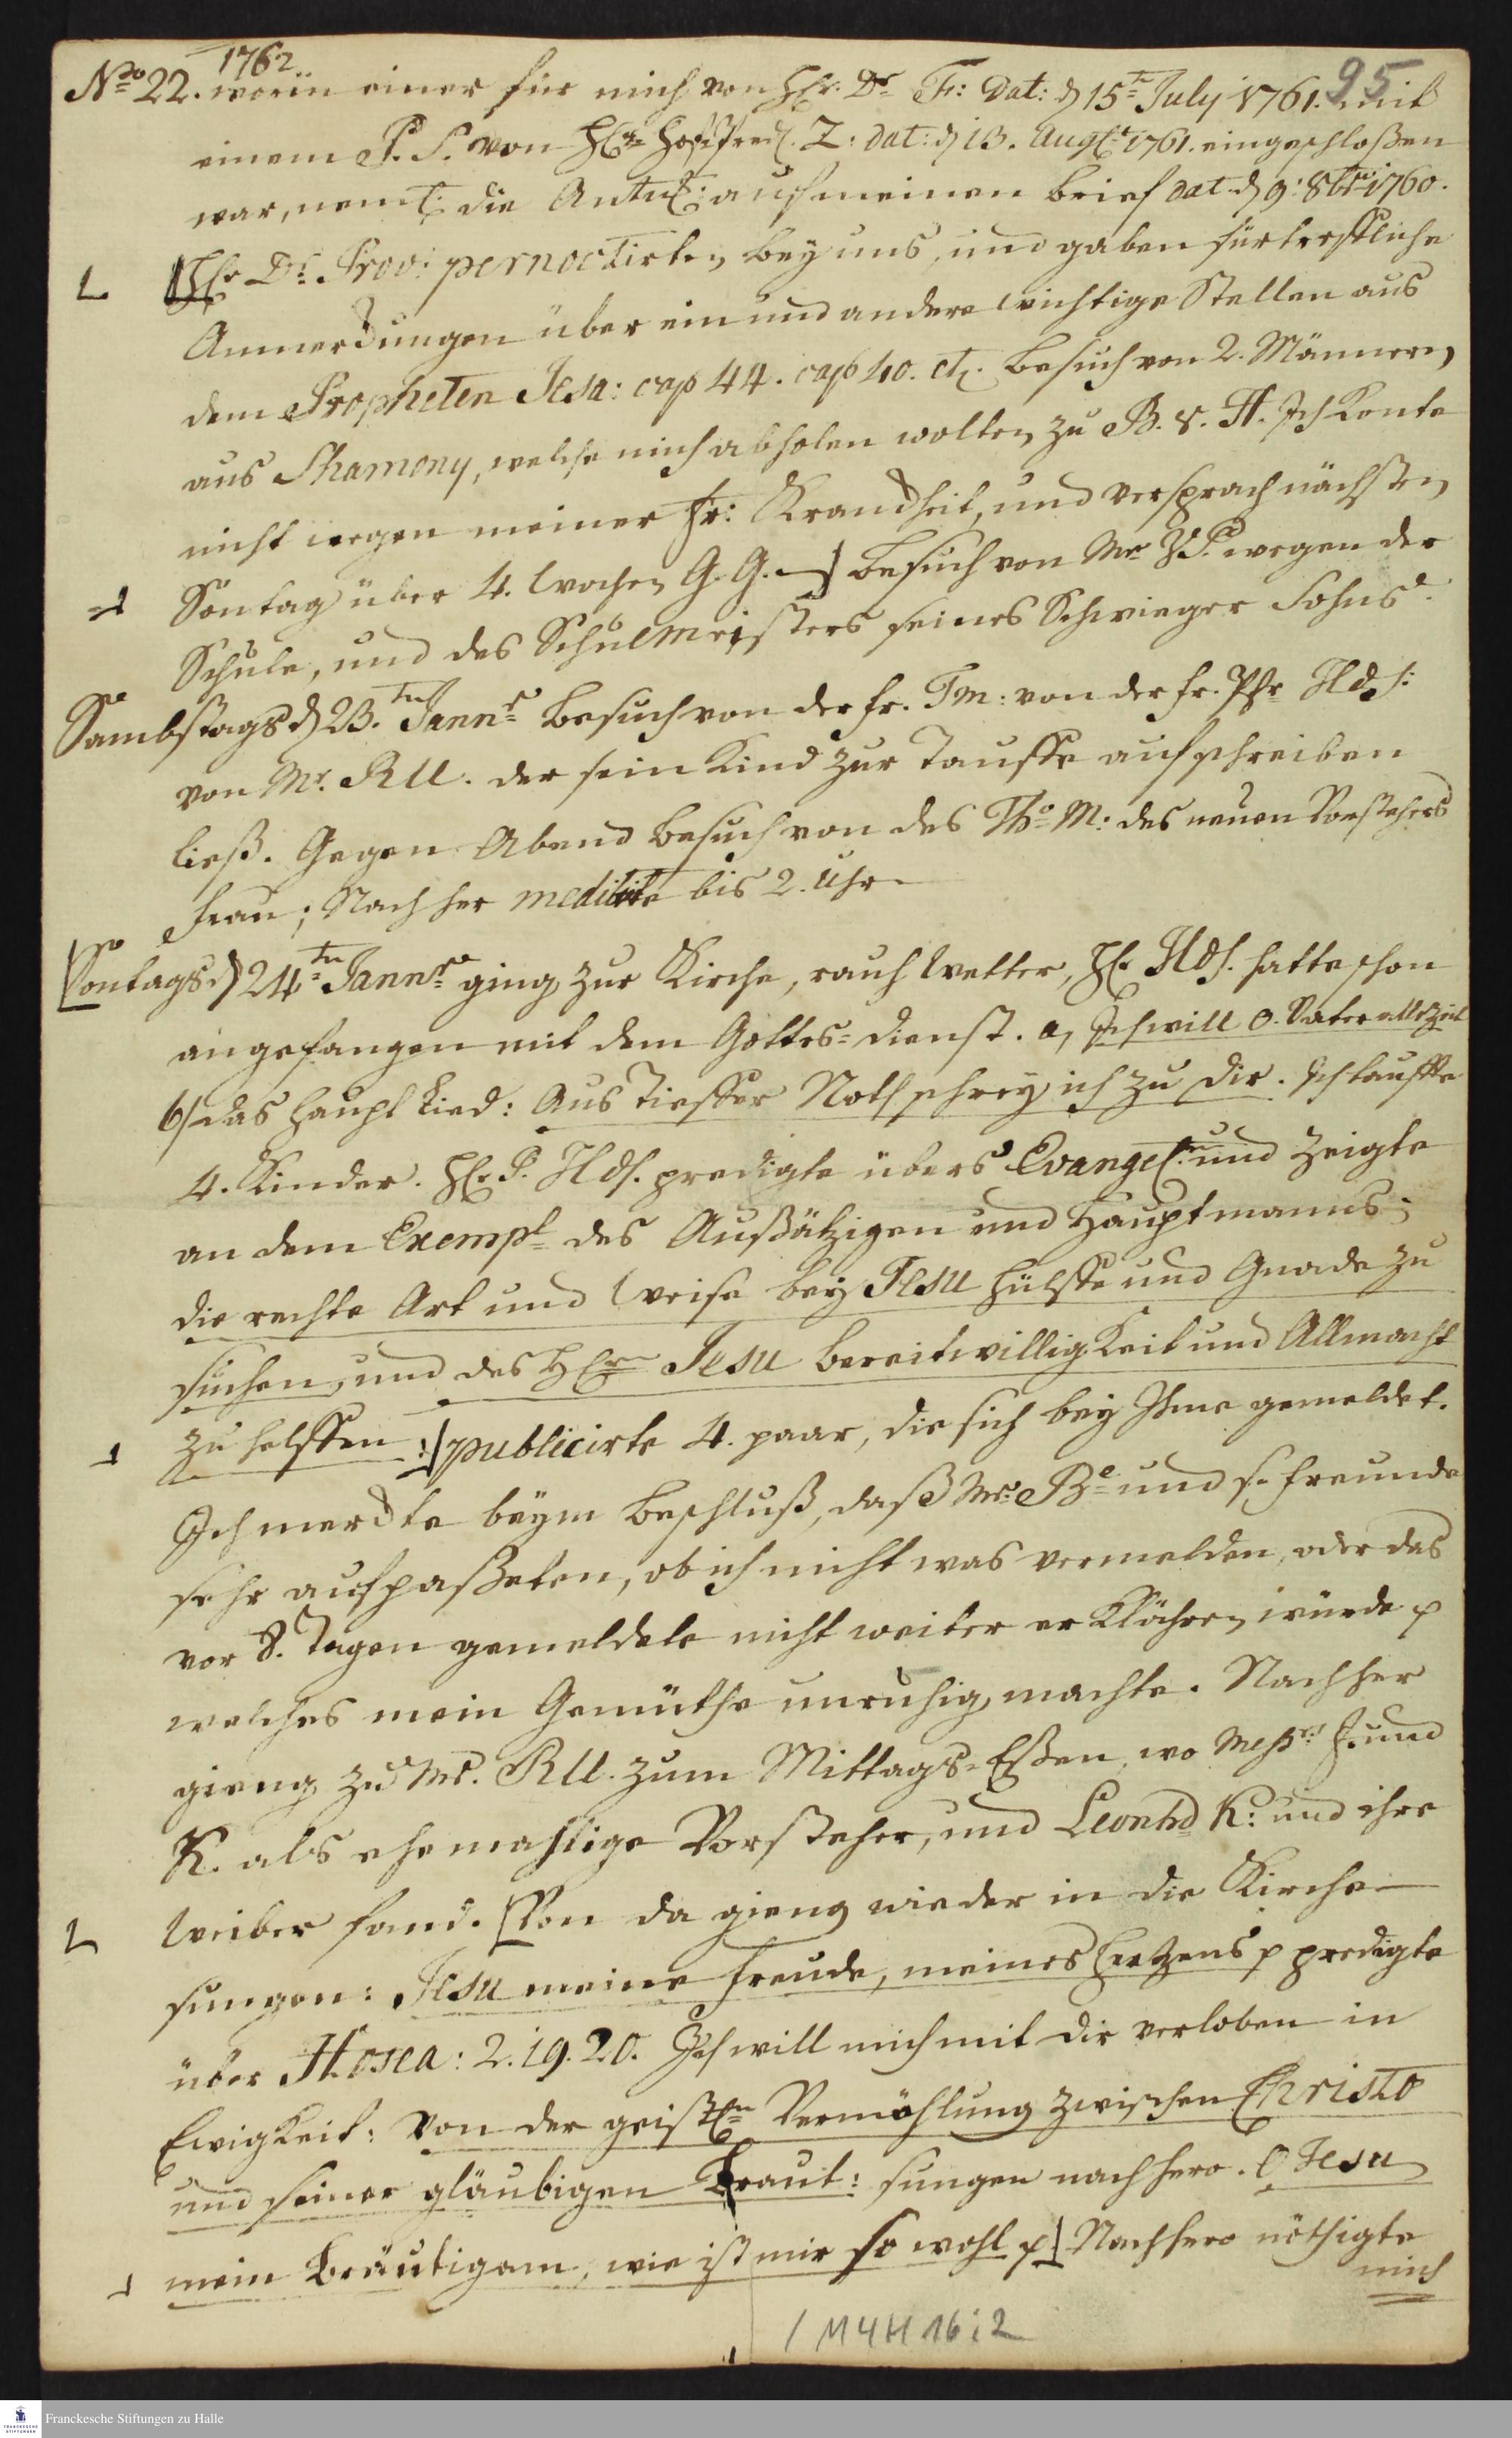 1762
95
No 22. worin einer für mich von H. Dr. F: dat: d 15t July 1761. mit
einem P. S. von H. Hofpred. Z: dat: d 13. Augst 1761. eingeschloßen
war, neml: die Antw: auf meinen brief dat. d 9: 8br: 1760.
Hr Dr. Prov: pernoctirten bey uns, und gaben fürtreffliche
Anmerckungen über ein und andere wichtige Stellen aus
dem Propheten Jesa: cap 44. cap 40. etc. Besuch von 2. Männern
aus Shamony, welche mich abholen wolten zu B. v. H. Ich konte
nicht wegen meiner Fr: Kranckheit, und versprach nächsten
Sontag über 4. Wochen G. G. Besuch von Mr VP. wegen der
Schule, und des Schulmeisters seines Schwieger Sohns.
Sambstags d 23.tn Jannr Besuch von der fr. Tm: von der fr. Pfr Hds:
von Mr. RU. der sein Kind zur Tauffe aufschreiben
ließ. Gegen Abend Besuch von des Tho M: des neuen Vorstehers
Frau; Nachher meditirte bis 2. Uhr
Sontags d 24tn Jannr ging zur Kirche, rauh Wetter, H. Hds. hatte schon
angefangen mit dem Gottes-dienst. a, Ich will o. Vater allezeit
b, das Haupt Lied: Aus tieffer Noth schrey ich zu dir. Ich tauffte
4. Kinder. H. P. Hds. predigte übers Evangel: und zeigte
an dem Exempl des Außätzigen und Hauptmanns;
die rechte Art und Weise bey Jesu Hülffe und Gnade zu
suchen, und des Hrn Jesu bereitwilligkeit und Allmacht
zu helffen: publicirte 4. paar, die sich bey Ihme gemeldet.
Ich merckte beym Beschluß, daß Mr. Be und s. freunde
sehr aufpaßeten, ob ich nicht was vermelden, oder das
vor 8. Tagen gemeldete nicht weiter erklähren würde p
welches mein Gemüthe unruhig machte. Nachher
gieng zu Mr. RU. zum Mittags-Eßen, wo Messrs F. und
K. als ehemahlige Vorsteher, und Leonhd K: und ihre
Weiber fand. Von da gieng wieder in die Kirche
sungen: Jesu meine Freude, meines Hertzens p predigte
über Hosea: 2. 19. 20. Ich will mich mit dir verloben in
Ewigkeit: Von der geistln Vermählung zwischen Christo
und seiner gläubigen Braut: sungen nachhero. O Jesu
mein Bräutigam, wie ist mir so wohl p Nachhero nöthigte
mich
/ M 4 H 16 : 2
Franckesche Stiftungen zu Halle